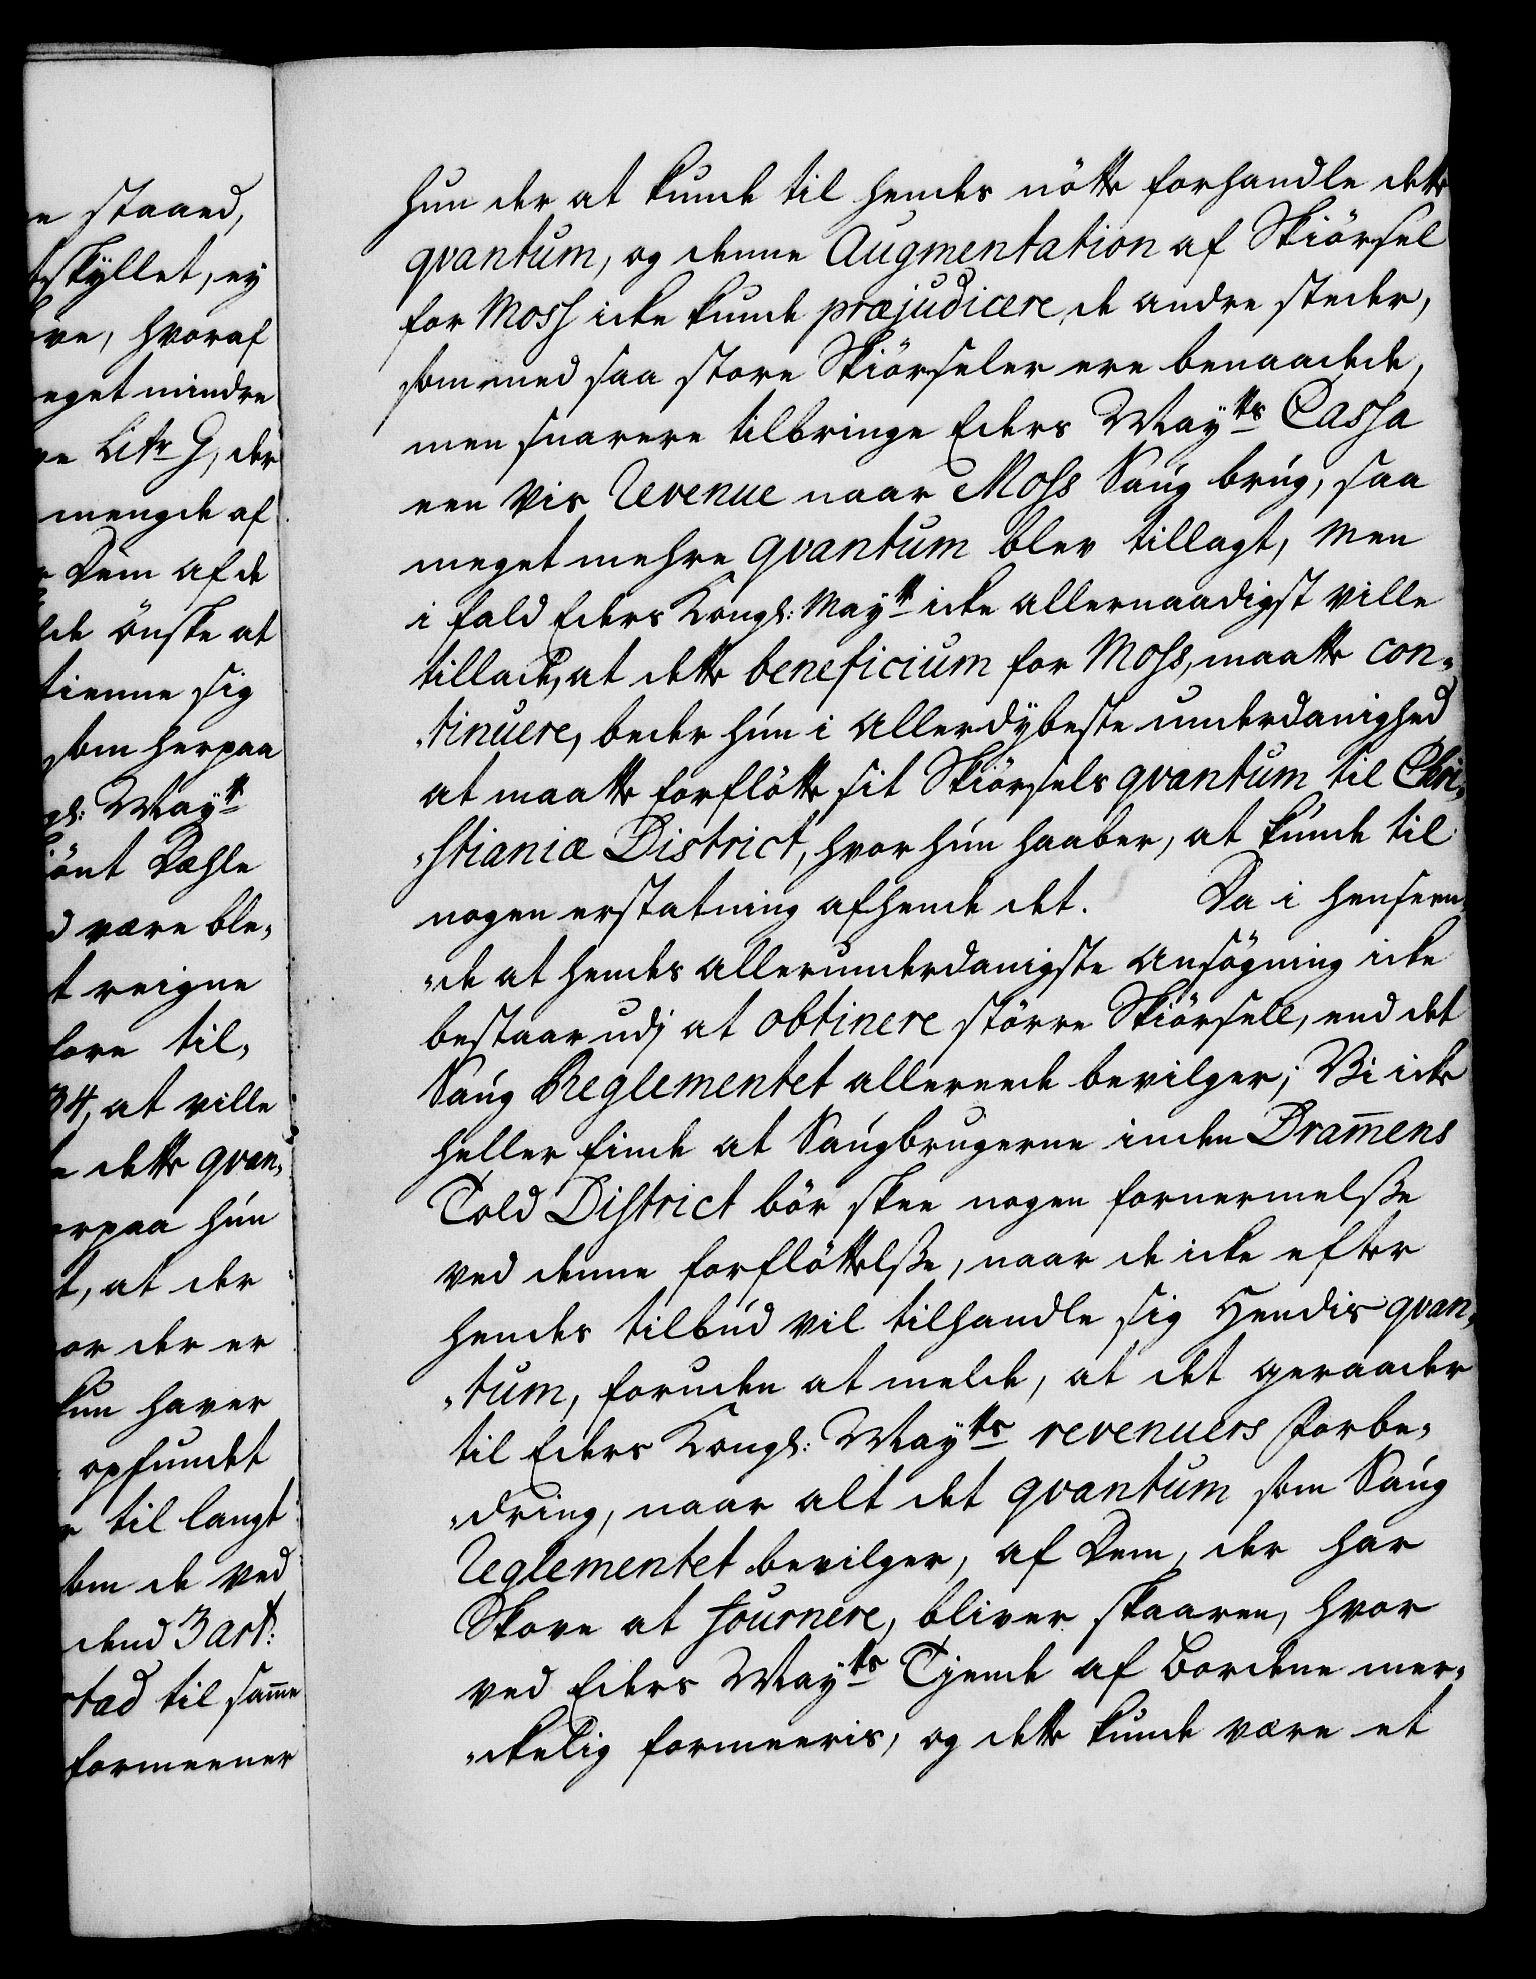 e staaed,
tskyllet, ey
ve, hvoraf
eget mindre
ve Litr G, der
mengde af
Dem af de
de önske at
tienne sig
som herpaa
gl: Maytt
önt Dæhle
d være ble„
t reigne
fore til„
34, at ville
e dette qvan„
erpaa hún
t, at der
or der er
kun haver
opfundet
r til langt
som de ved
dend 3 art:
stad til sam̄e
formeener
hun der at kunde til hendes nötte forhandle dette
qvantum, og denne Augmentation af Skiörsel
for Moss icke kunde præjudicere de andre steder,
som med saa store Skiörseler ere benaadede,
men snarere tilbringe Eders Maytts Cassa
een vis Revenue naar Moss Saúg brúg, saa
meget mehre qvantum blev tillagt, Men
i fald Eders Kongl: Maytt icke allernaadigst ville
tillade, at dette beneficium for Moss, maatte con„
„tinuere, beder hún i allerdybeste underdanighed
at maatte forflötte sit Skiörsels qvantum til Chri„
„stianiæ District, hvor hún haaber, at kunde til
nogen erstatning afhende det. Da i henseen„
„de at hendes allerunderdanigste Ansögning icke
bestaar udj at obtinere större Skiörsell, end det
Saúg Reglementet allereede bevilger; Vi icke
heller finde at Saúgbrugerne inden Dram̄ens
Told District bör skee nogen fornermelsse
ved denne forflöttelsse, naar de icke efter
hendes tilbúd vil tilhandle sig Hendis qvan„
„tum, foruden at melde, at det geraader
til Eders Kongl: Maytts revenuers Forbe„
„dring, naar alt det qvantum som Saúg
Reglementet bevilger, af Dem, der har
Skove at fournere, bliver skaaren, hvor
ved Eders Maytts Tjende af Bordene mer„
„ckelig formeeris, og dette kunde være et